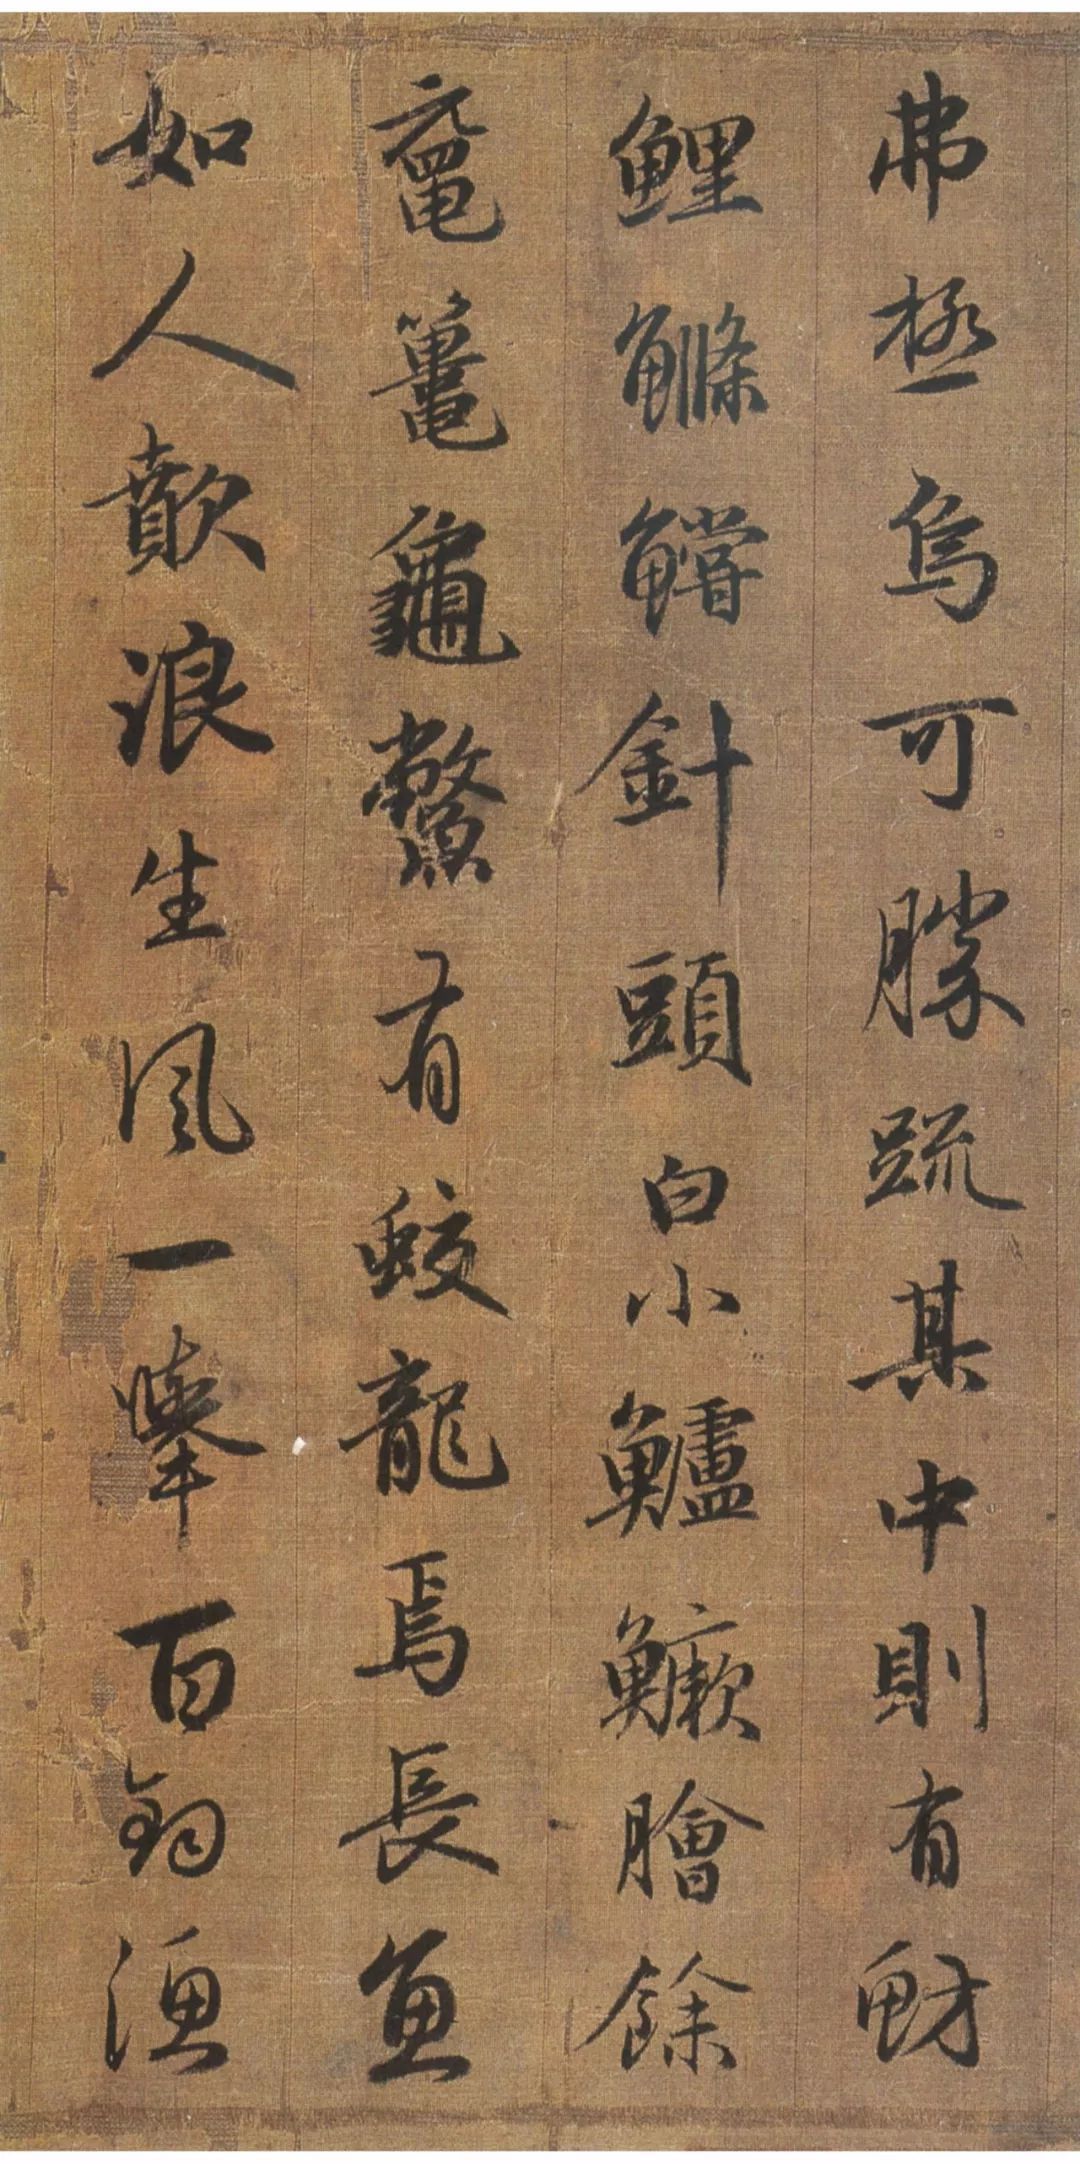 弗極烏可勝疏其中則有
鯉鰷鱨針頭白小鱸鱖膾餘
黿鼉龜鱉有蛟龍焉長魚
如人歕浪生風一舉百鈞漁